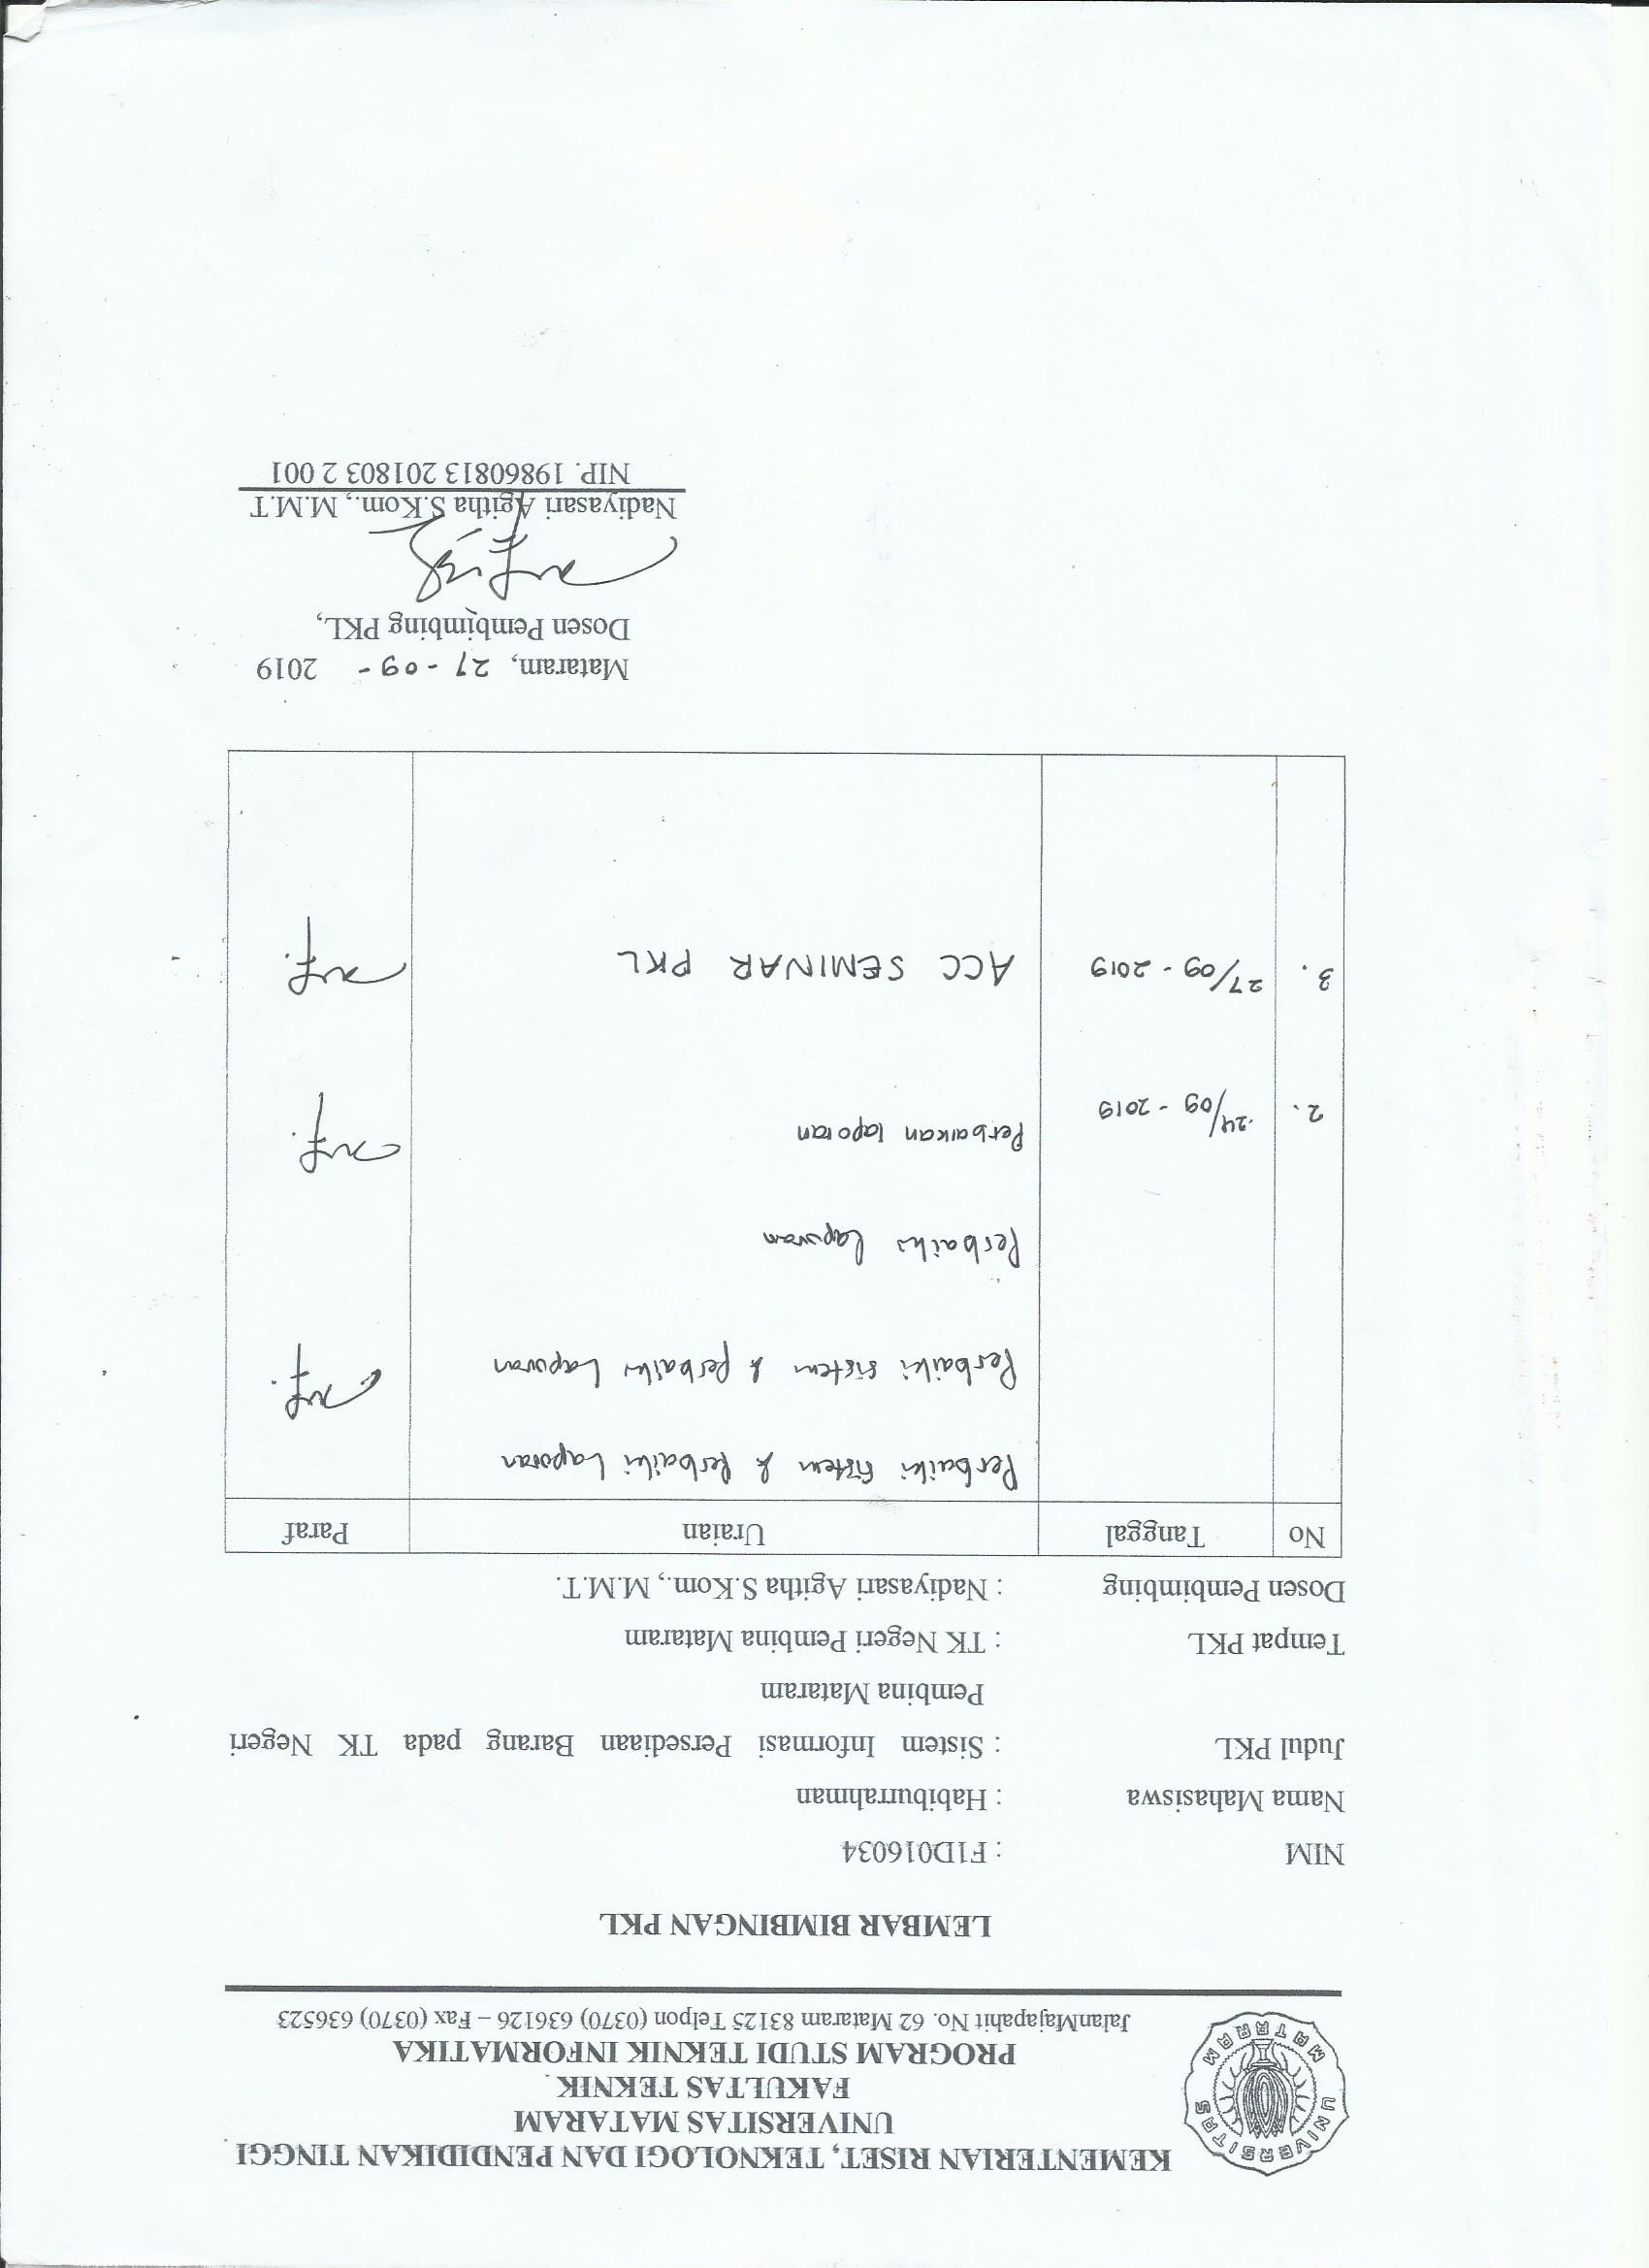 KEMENTERIAN RISET, TEKNOLOGI DAN PENDIDIKAN TINGGI
UNIVERSITAS MATARAM
FAKULTAS TEKNIK
PROGRAM STUDI TEKNIK INFORMATIKA
JalanMajapahit No. 62 Mataram 83125 Telpon (0370) 636126 – Fax (0370) 636523
UNIVERSITAS MATARAM
LEMBAR BIMBINGAN PKL
NIM : F1D016034
Nama Mahasiswa : Habiburrahman
Judul PKL : Sistem Informasi Persediaan Barang pada TK Negeri
Pembina Mataram
Tempat PKL : TK Negeri Pembina Mataram
Dosen Pembimbing : Nadiyasari Agitha S.Kom., M.M.T.
No Tanggal Uraian Paraf
Perbaiki Sistem & Perbaiki Laporan
Perbaiki sistem & perbaiki Laporan
Perbaiki laporan
2. 24/09 - 2019 Perbaikan laporan
3. 27/09 - 2019 ACC SEMINAR PKL
Mataram, 27 - 09 - 2019
Dosen Pembimbing PKL,
Nadiyasari Agitha S.Kom., M.M.T
NIP. 19860813 201803 2 001